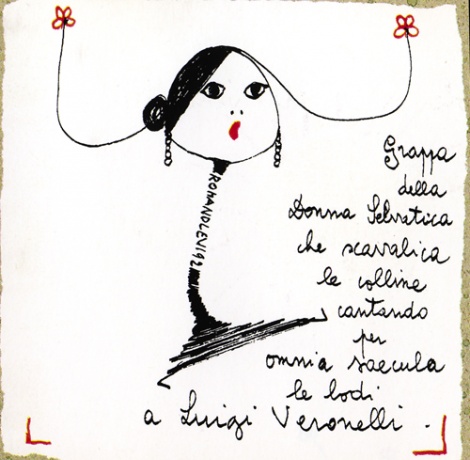 ROMANOLEVI92
Grappa
della
Donna Selvatica
che scavalica
le colline
cantando
per
omnia saecula
le lodi
a Luigi Veronelli.